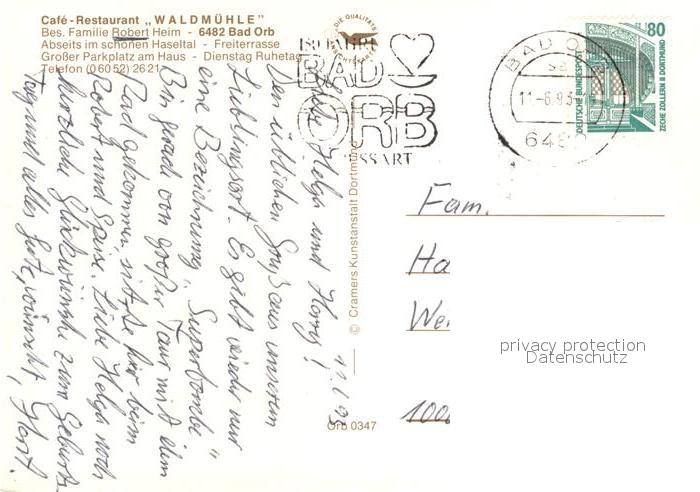 Café-Restaurant „WALDMÜHLE"
Bes. Familie Robert Heim - 6482 Bad Orb
Abseits im schönen Haseltal - Freiterrasse
Großer Parkplatz am Haus - Dienstag Ruhetag
Telefon (06052) 2621
DIE QUALITÄTS
BAD
ORB
BAD O
11-6.93
648
80
DEUTSCHE BUNDESPOST
ZECHE ZOLLERN II DORTMUND
11.6.93
Helga und Horry!
Den üblichen Gruß aus unserem
Lieblingsort. Es gibt wieder nur
eine Bezeichnung „Superbombe"
Bin gerade von großer Tour mit dem
Rad gekommen, sitze hier beim
Robert und Speise. Liebe Helga noch
herzliche Glückwünsche zum Geburts
Tag und alles Gute, wünscht, Horst.
© Cramers Kunstanstalt Dortmund
Orb 0347
Fam.
Ha
We
100
privacy protection
Datenschutz